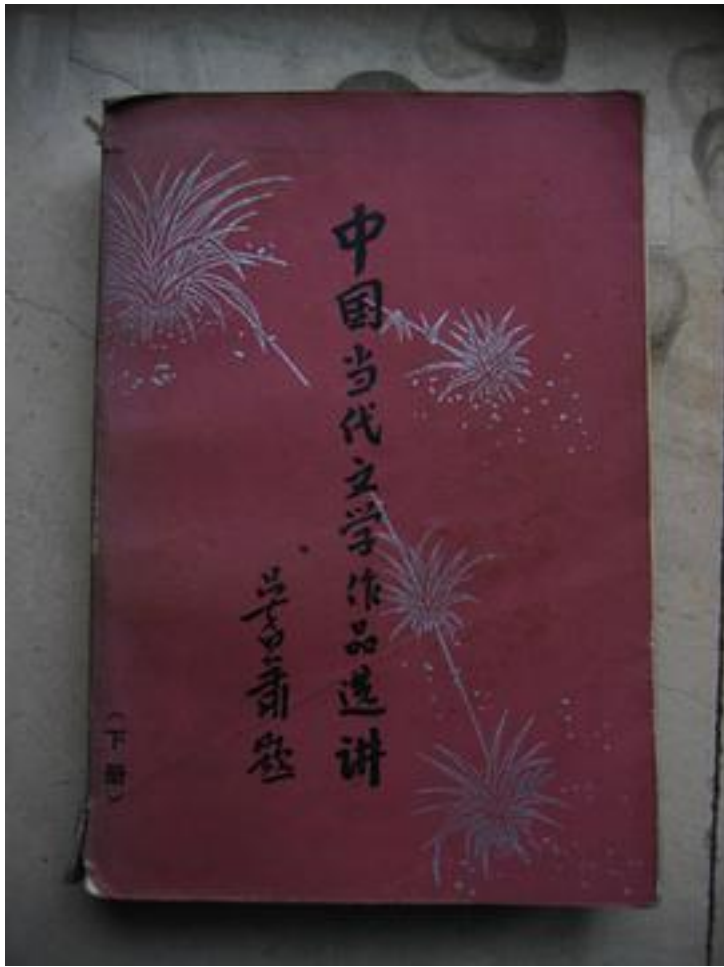 中国当代文学作品选讲
吴奔星题
（下册）